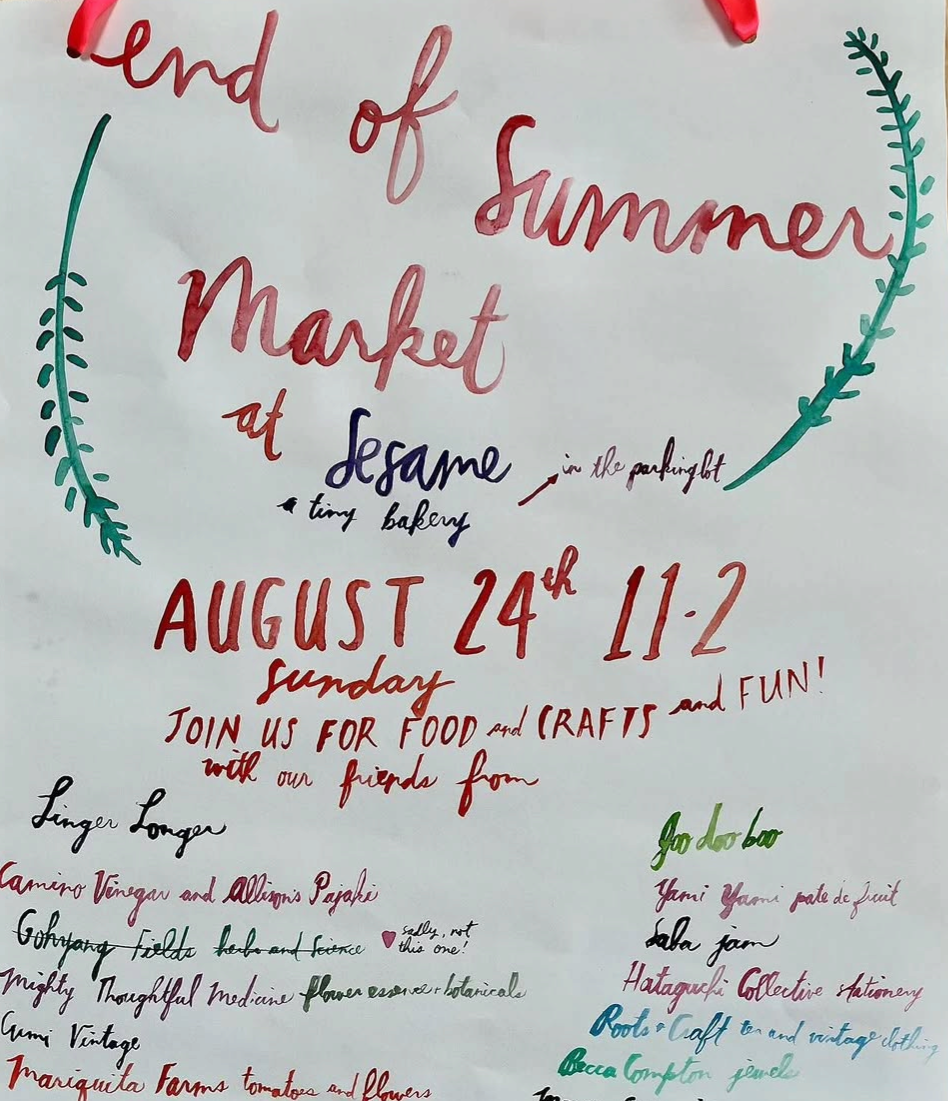 end
of
Summer
Market
at Sesame
in the parking lot
a tiny bakery
AUGUST 24th 11-2
sunday
JOIN US FOR FOOD and CRAFTS and FUN!
with our friends from
Linger Longer
Camino Vinegar and Allison's Pajaki
Gohyang Fields herbs and Science
sadly, not
this one!
Mighty Thoughtful Medicine flower essence + botanicals
Gumi Vintage
Mariquita Farms tomatoes and flowers
Joo doo boo
Yami Yami pate de fruit
Saba jam
Hataguchi Collective stationery
Roots + Craft tea and vintage clothing
Becca Compton jewels